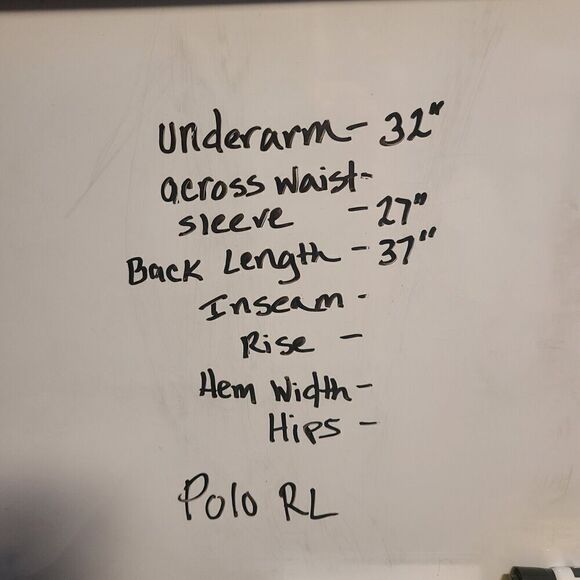 Underarm - 32"
across Waist-
sleeve - 27"
Back Length - 37"
Inseam -
Rise -
Hem Width -
Hips -
Polo RL